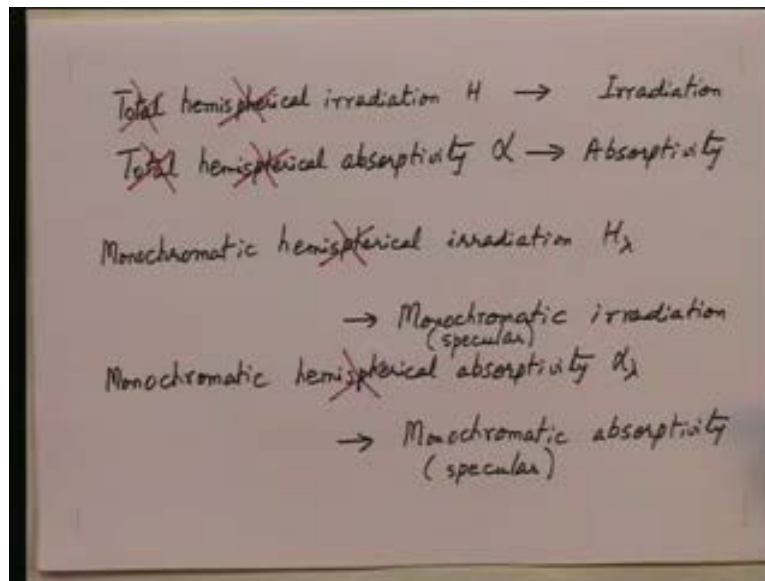 Total hemispherical irradiation H → Irradiation
Total hemispherical absorptivity α → Absorptivity
Monochromatic hemispherical irradiation Hλ
→ Monochromatic irradiation
(specular)
Monochromatic hemispherical absorptivity αλ
→ Monochromatic absorptivity
(specular)